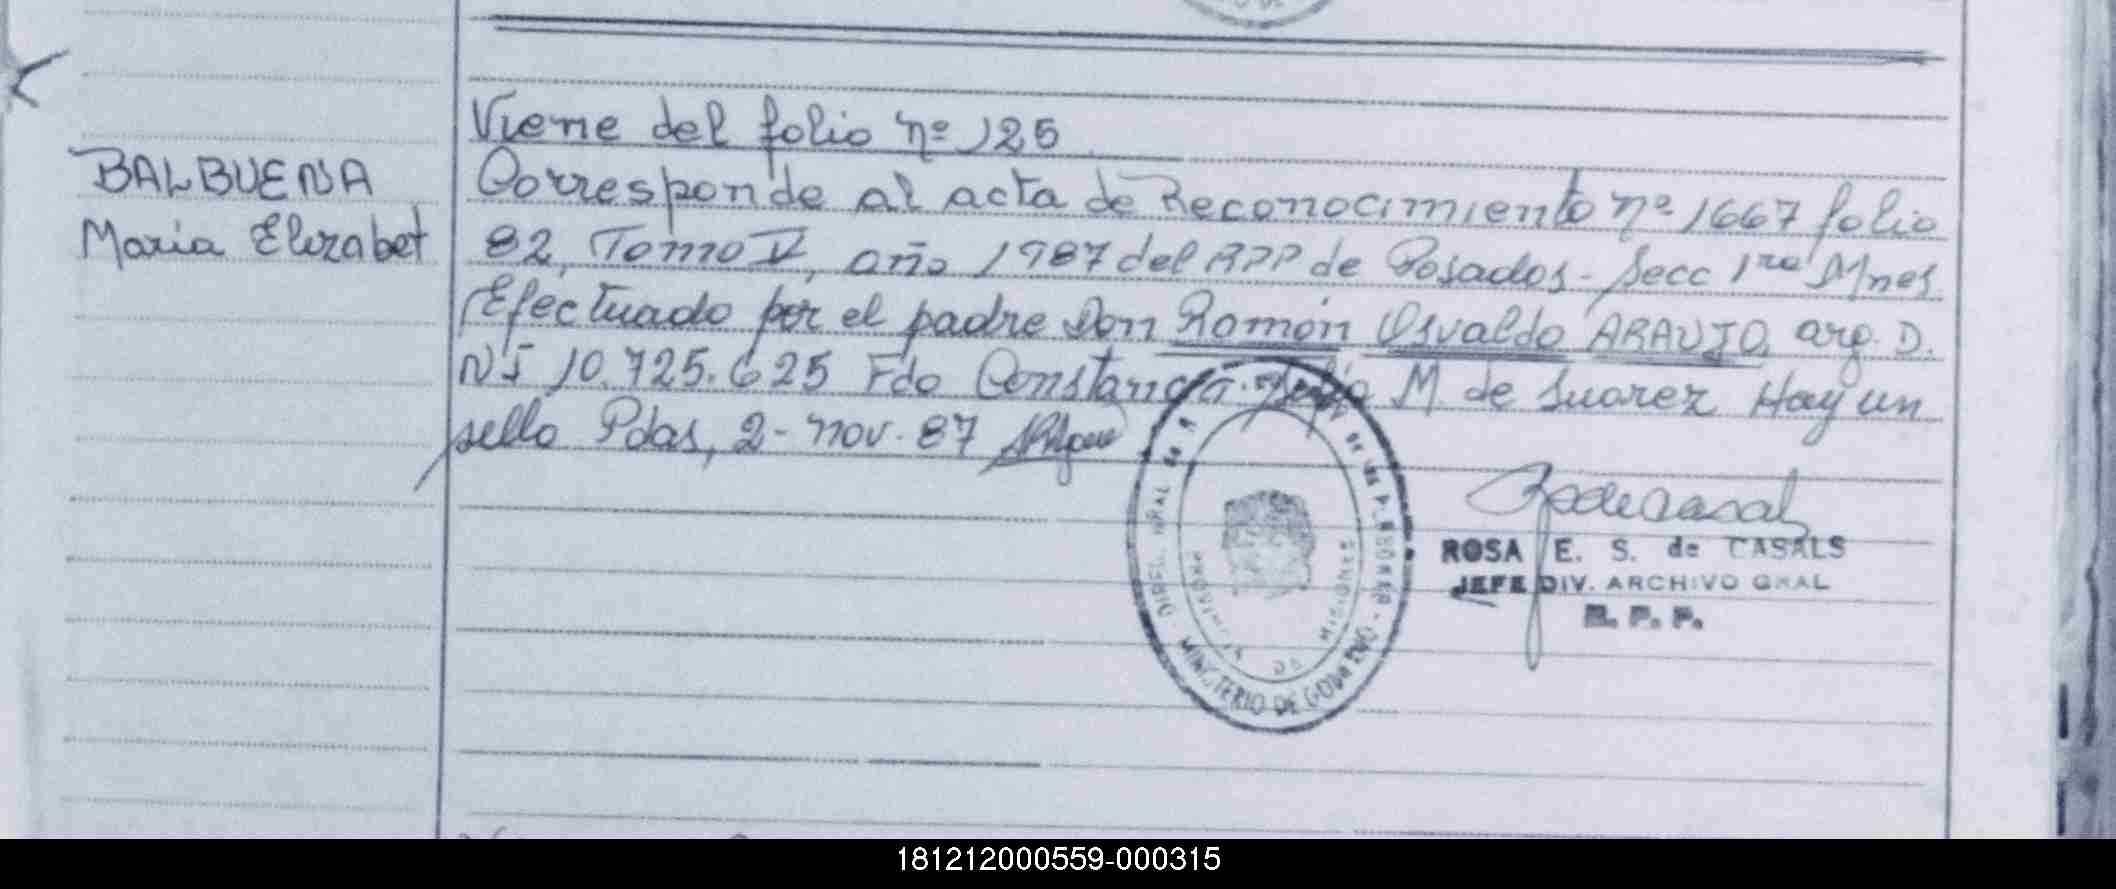 Viene del folio nº 125
BALBUENA
Maria Elizabet
Corresponde al acta de Reconocimiento nº 1667 folio
82, Tomo V, año 1987 del RPP de Posadas - Secc 1ra Mnes
Efectuado por el padre Don Ramón Osvaldo ARAUJO, arg. D.
NI 10.725.625 Fdo Constancia M. de Suarez Hay un
sello Pdas, 2- nov. 87
ROSA E. S. de CASALS
JEFE DIV. ARCHIVO GRAL
R. P. P.
MINISTERIO DE GOBIERNO
PROVINCIA DE MISIONES
181212000559-000315